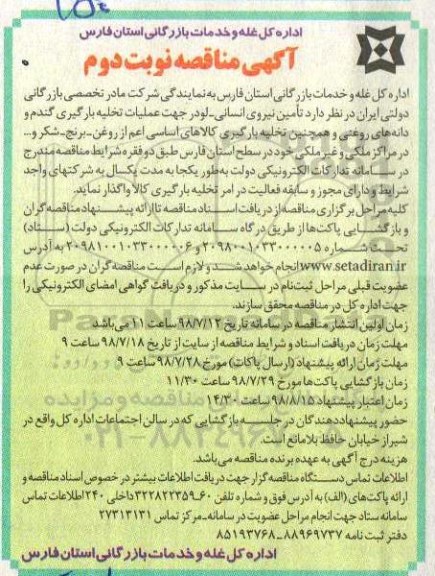 اداره کل غله و خدمات بازرگانی استان فارس
آگهی مناقصه نوبت دوم
اداره کل غله و خدمات بازرگانی استان فارس به نمایندگی شرکت مادر تخصصی بازرگانی
دولتی ایران در نظر دارد تأمین نیروی انسانی-لودر جهت عملیات تخلیه بارگیری گندم و
دانه‌های روغنی و همچنین تخلیه بارگیری کالاهای اساسی اعم از روغن-برنج-شکر و...
در مراکز ملکی و غیر ملکی خود در سطح استان فارس طبق دو فقره شرایط مناقصه مندرج
در سامانه تدارکات الکترونیکی دولت به‌طور یکجا به مدت یکسال به شرکتهای واجد
شرایط و دارای مجوز و سابقه فعالیت در امر تخلیه بارگیری کالا واگذار نماید.
کلیه مراحل برگزاری مناقصه از دریافت اسناد مناقصه تا ارائه پیشنهاد مناقصه‌گران
و بازگشایی پاکت‌ها از طریق درگاه سامانه تدارکات الکترونیکی دولت (ستاد)
تحت شماره ۲۰۹۸۰۰۱۰۳۳۰۰۰۰۰۵ و ۲۰۹۸۱۰۰۱۰۳۳۰۰۰۰۰۶ به آدرس
www.setadiran.ir انجام خواهد شد و لازم است مناقصه‌گران در صورت عدم
عضویت قبلی مراحل ثبت‌نام در سایت مذکور و دریافت گواهی امضای الکترونیکی را
جهت اداره کل در مناقصه محقق سازند.
زمان اولین انتشار مناقصه در سامانه تاریخ ۹۸/۷/۱۲ ساعت ۱۱ می‌باشد
مهلت زمان دریافت اسناد و شرایط مناقصه از سایت از تاریخ ۹۸/۷/۱۸ ساعت ۹
مهلت زمان ارائه پیشنهاد (ارسال پاکات) مورخ ۹۸/۷/۲۸ ساعت ۹
زمان بازگشایی پاکت‌ها مورخ ۹۸/۷/۲۹ ساعت ۱۱/۳۰
زمان اعتبار پیشنهاد ۹۸/۸/۱۵ ساعت ۱۴/۳۰
حضور پیشنهاددهندگان در جلسه بازگشایی که در سالن اجتماعات اداره کل واقع در
شیراز خیابان حافظ بلامانع است.
هزینه درج آگهی به عهده برنده مناقصه می‌باشد.
اطلاعات تماس دستگاه مناقصه‌گزار جهت دریافت اطلاعات بیشتر در خصوص اسناد مناقصه و
ارائه پاکت‌های (الف) به آدرس فوق و شماره تلفن ۶۰-۳۲۲۸۲۲۳۵۹ داخلی ۲۴۰ اطلاعات تماس
سامانه ستاد جهت انجام مراحل عضویت در سامانه-مرکز تماس ۲۷۳۱۳۱۳۱
دفتر ثبت نامه ۸۸۹۶۹۷۳۷-۸۵۱۹۳۷۶۸
اداره کل غله و خدمات بازرگانی استان فارس